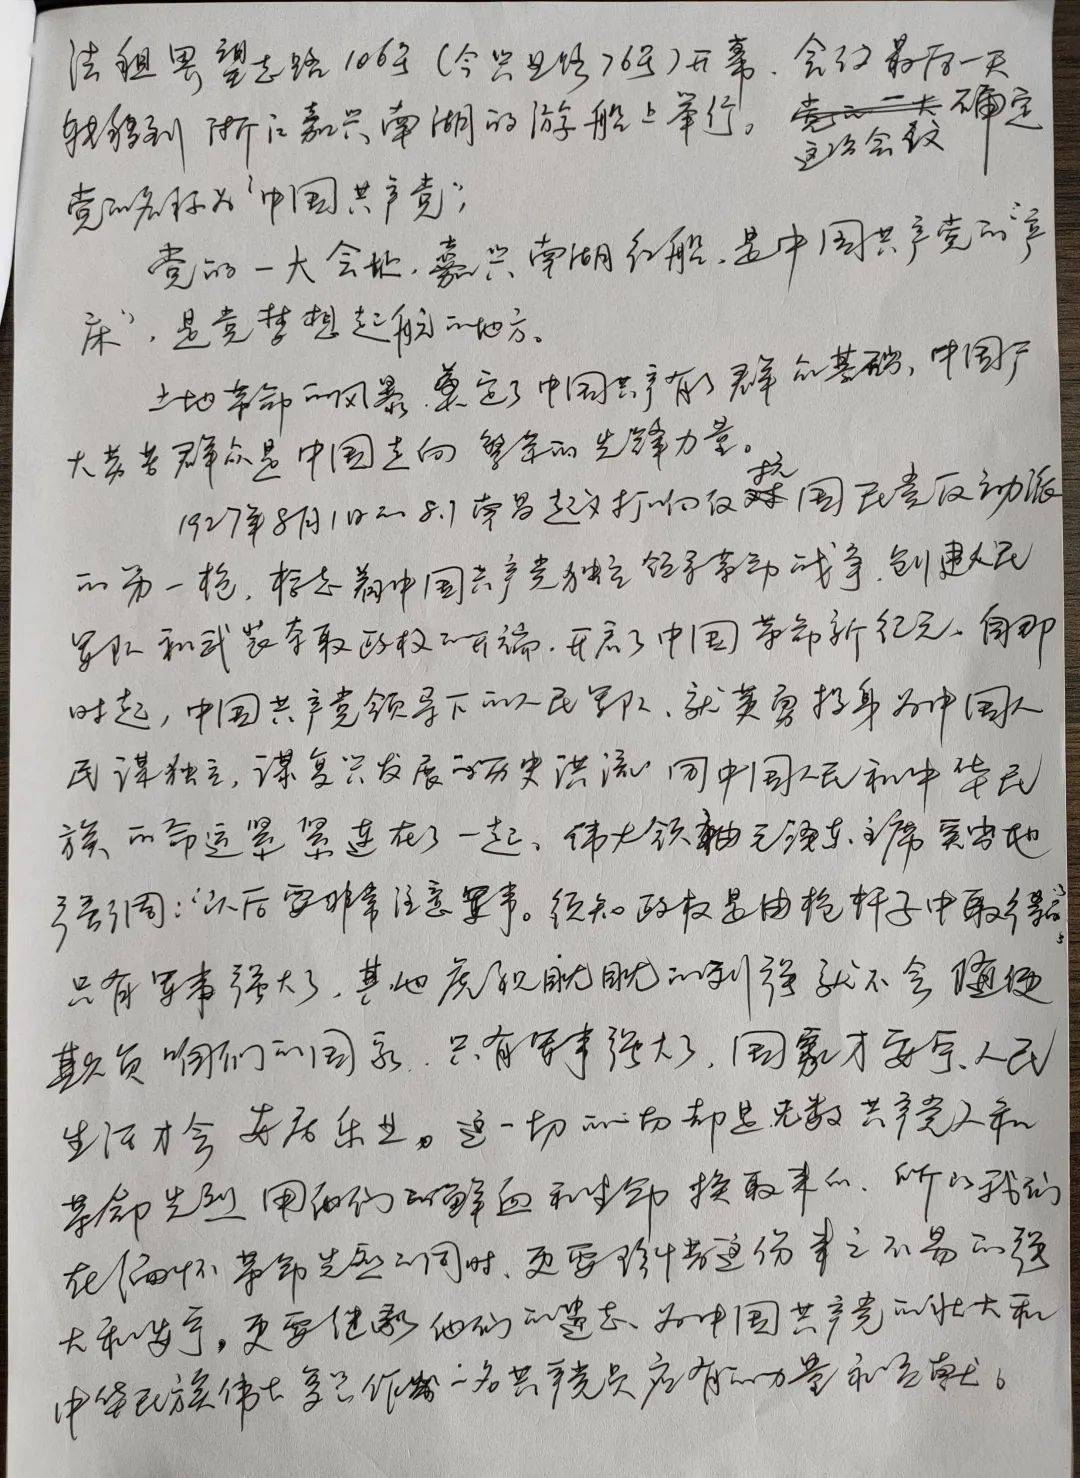 法租界望志路106号(今兴业路76号)开幕、会议最后一天
转移到浙江嘉兴南湖的游船上举行。这次会议确定
党的名称为"中国共产党";
党的一大会址、嘉兴南湖红船、是中国共产党的"产
床"、是党梦想起航的地方。
土地革命的风暴、奠定了中国共产有了群的基础、中国广
大劳苦群众是中国走向繁荣的先锋力量。
1927年8月1日的8.1南昌起义打响反抗国民党反动派
的第一枪、标志着中国共产党独立领导革命战争、创建人民
军队和武装夺取政权的开端、开启了中国革命新纪元。自那
时起,中国共产党领导下的人民军队、就英勇投身为中国人
民谋独立,谋复兴发展的历史洪流 同中国人民和中华民
族的命运紧紧连在了一起、伟大领袖毛泽东主席
强调:"以后要非常注意军事。须知政权是由枪杆子中取得的"。
只有军事强大了、其他虎视眈眈的列强就不会随便
欺负咱们的国家、只有军事强大了、国家才安宁、人民
生活才会安居乐业。这一切的一切却是无数共产党人和
革命先烈用他们的鲜血和生命换取来的、所以我们
在缅怀革命先烈的同时、更要珍惜这份来之不易的强
大和安宁,更要继承他们的遗志、为中国共产党的壮大和
中华民族伟大复兴作出一名共产党员应有的力量和贡献。